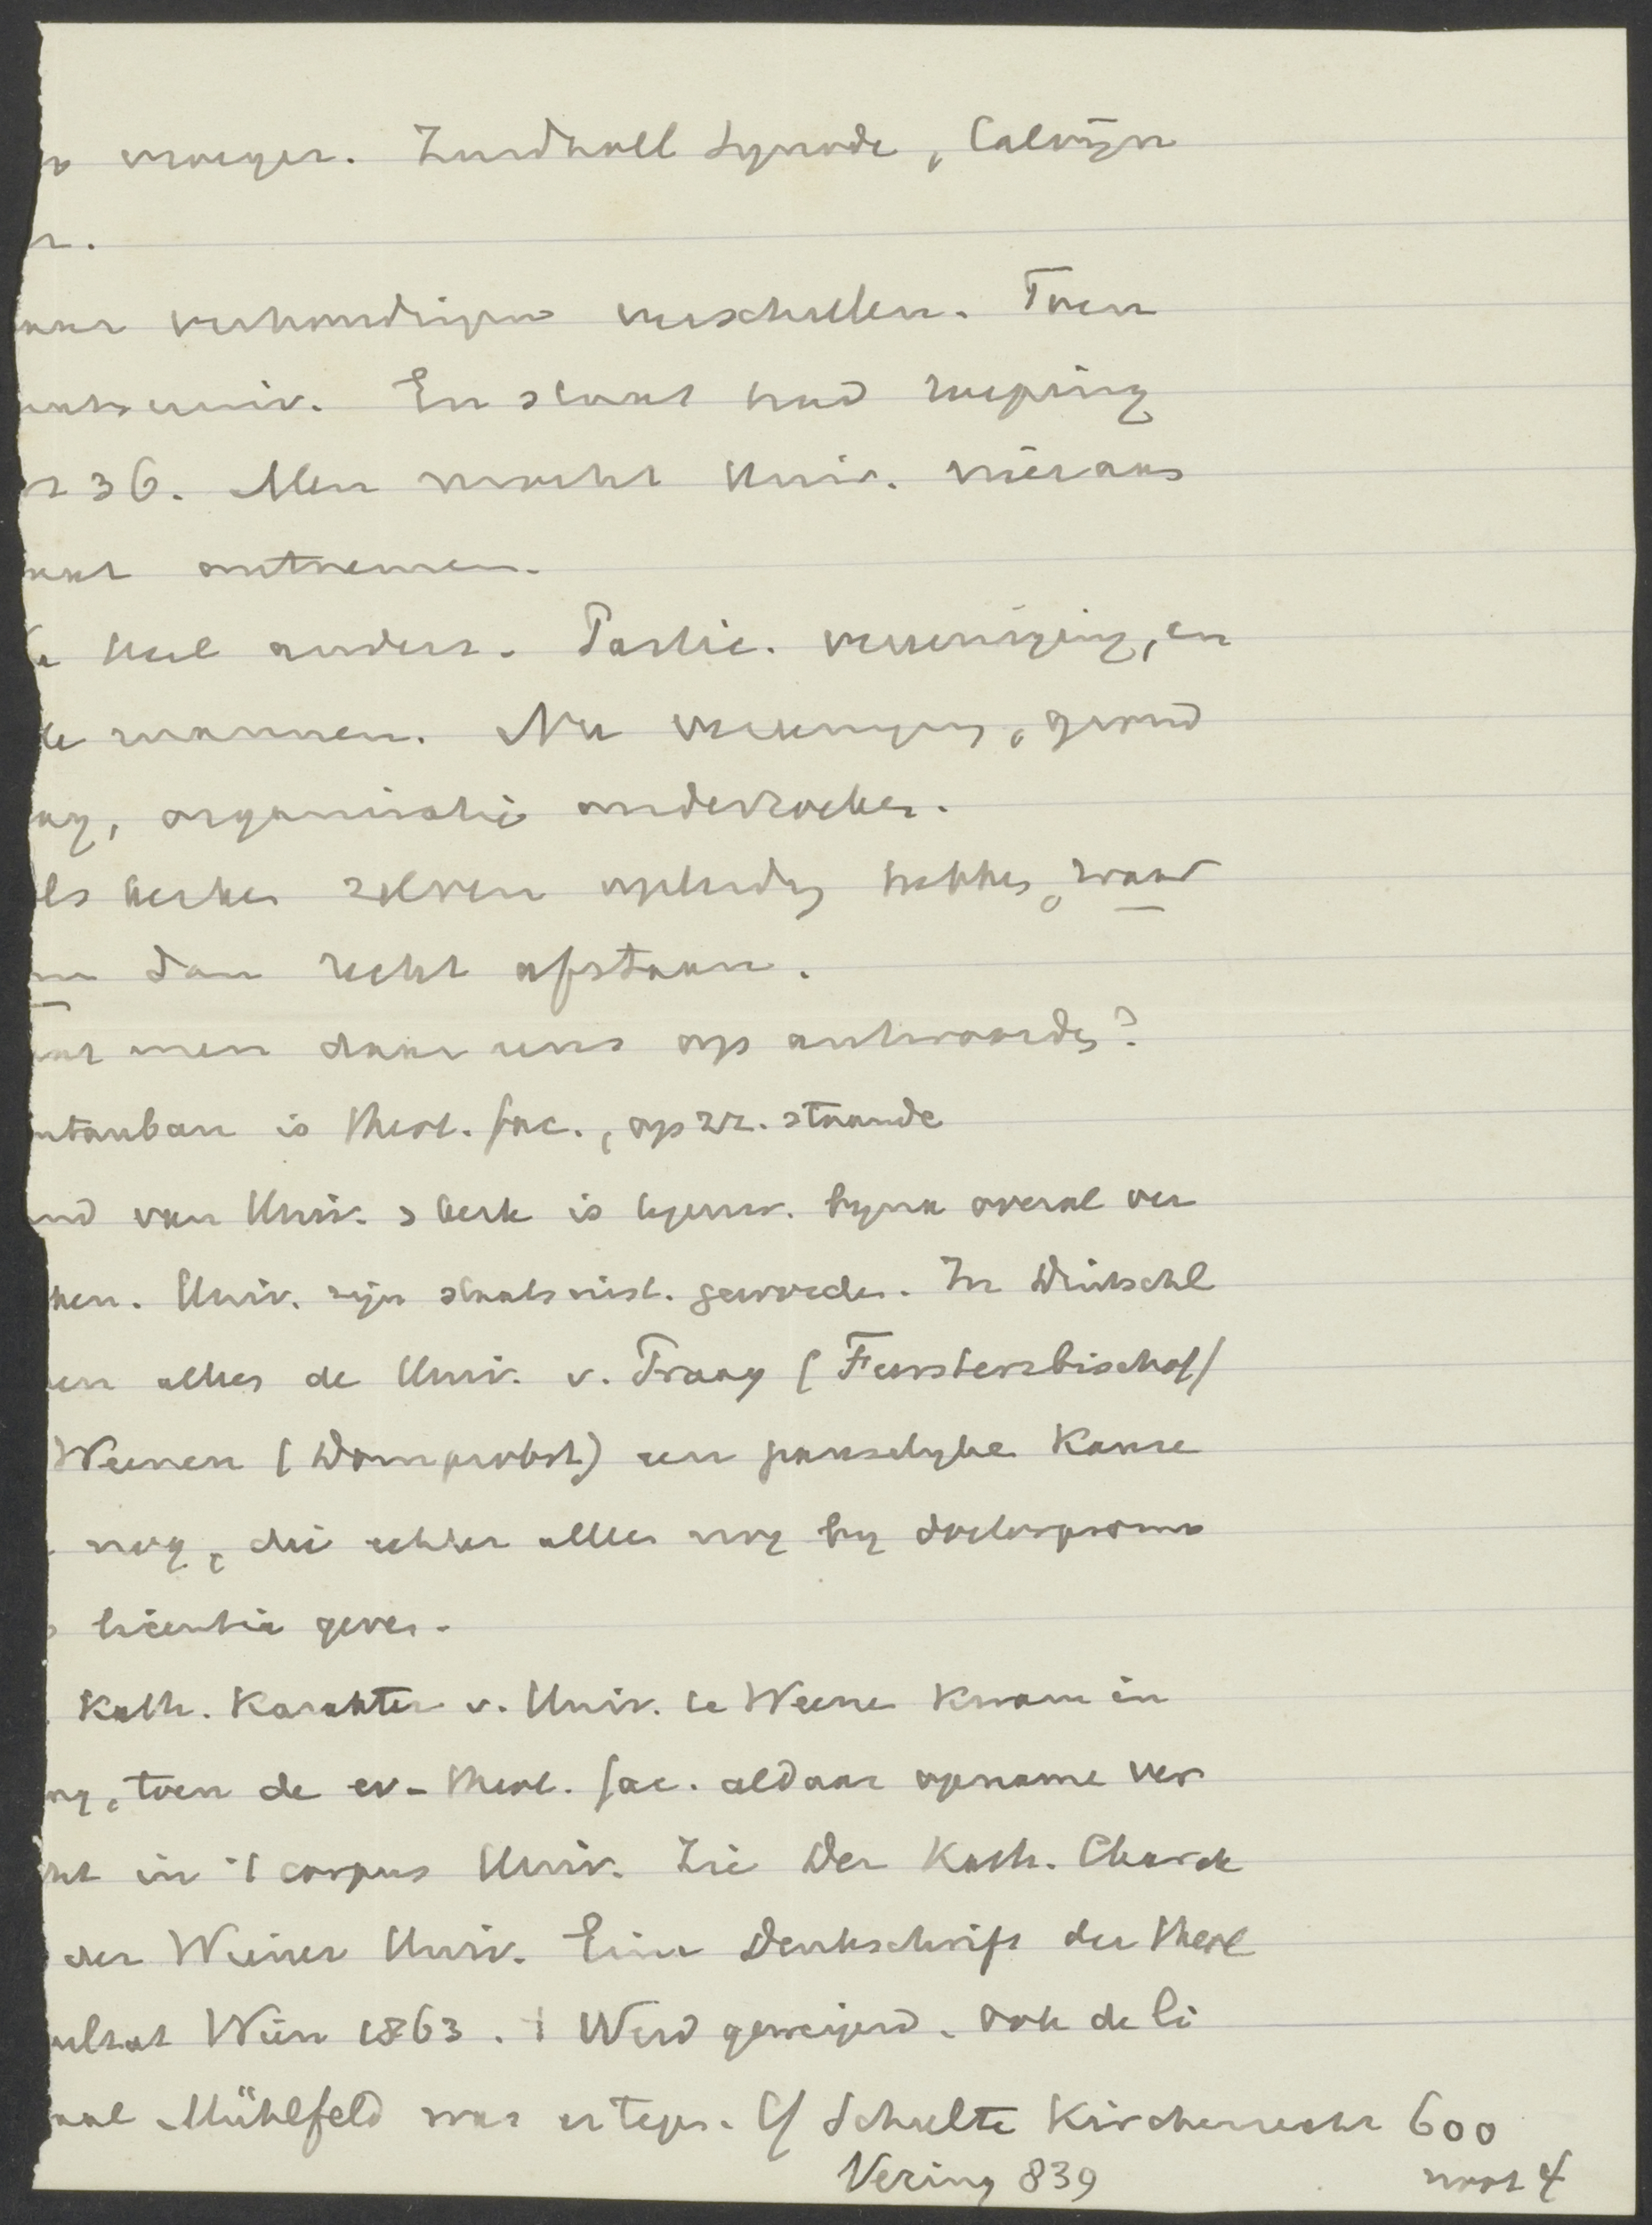 vroeger. Zuidholl Synode, Calvijn
n.
verhoudingen verschillen. Toen
univ. En staat had roeping
36. Men mocht Univ. niet aan
ontnemen.
heel anders. Partic. vereeniging, en
mannen. Nu vereeniging, grond
ag, organisatie onderzoeken.
als kerken zelven opleidg hebben, waar
dan recht afstaan.
men daar eens op antwoorde?
ntauban is theol. fac., op zz. staande
nd van Univ. & kerk is tegenw. bijna overal ver
ken. Univ. zijn staatsinst. geworden. In Duitschl
en alleen de Univ. v. Praag (Fursterzbischof)
Weenen (Domprobst) een pauselijke Kanse
nog, die echter alleen nog bij doctorpromo
licentie geven.
Kath. Karakter v. Univ. te Weenen kwam in
ng, toen de ev-theol. fac. aldaar opname ver
ht in 't corpus Univ. Zie Der Kath. Charak
der Wiener Univ. Eine Denkschrift der theol
ultat Wien 1863. Werd geweigerd. Ook de li
aal Mühlfeld was er tegen. Cf Schulte Kirchenrecht 600
Vering 839 noot 4